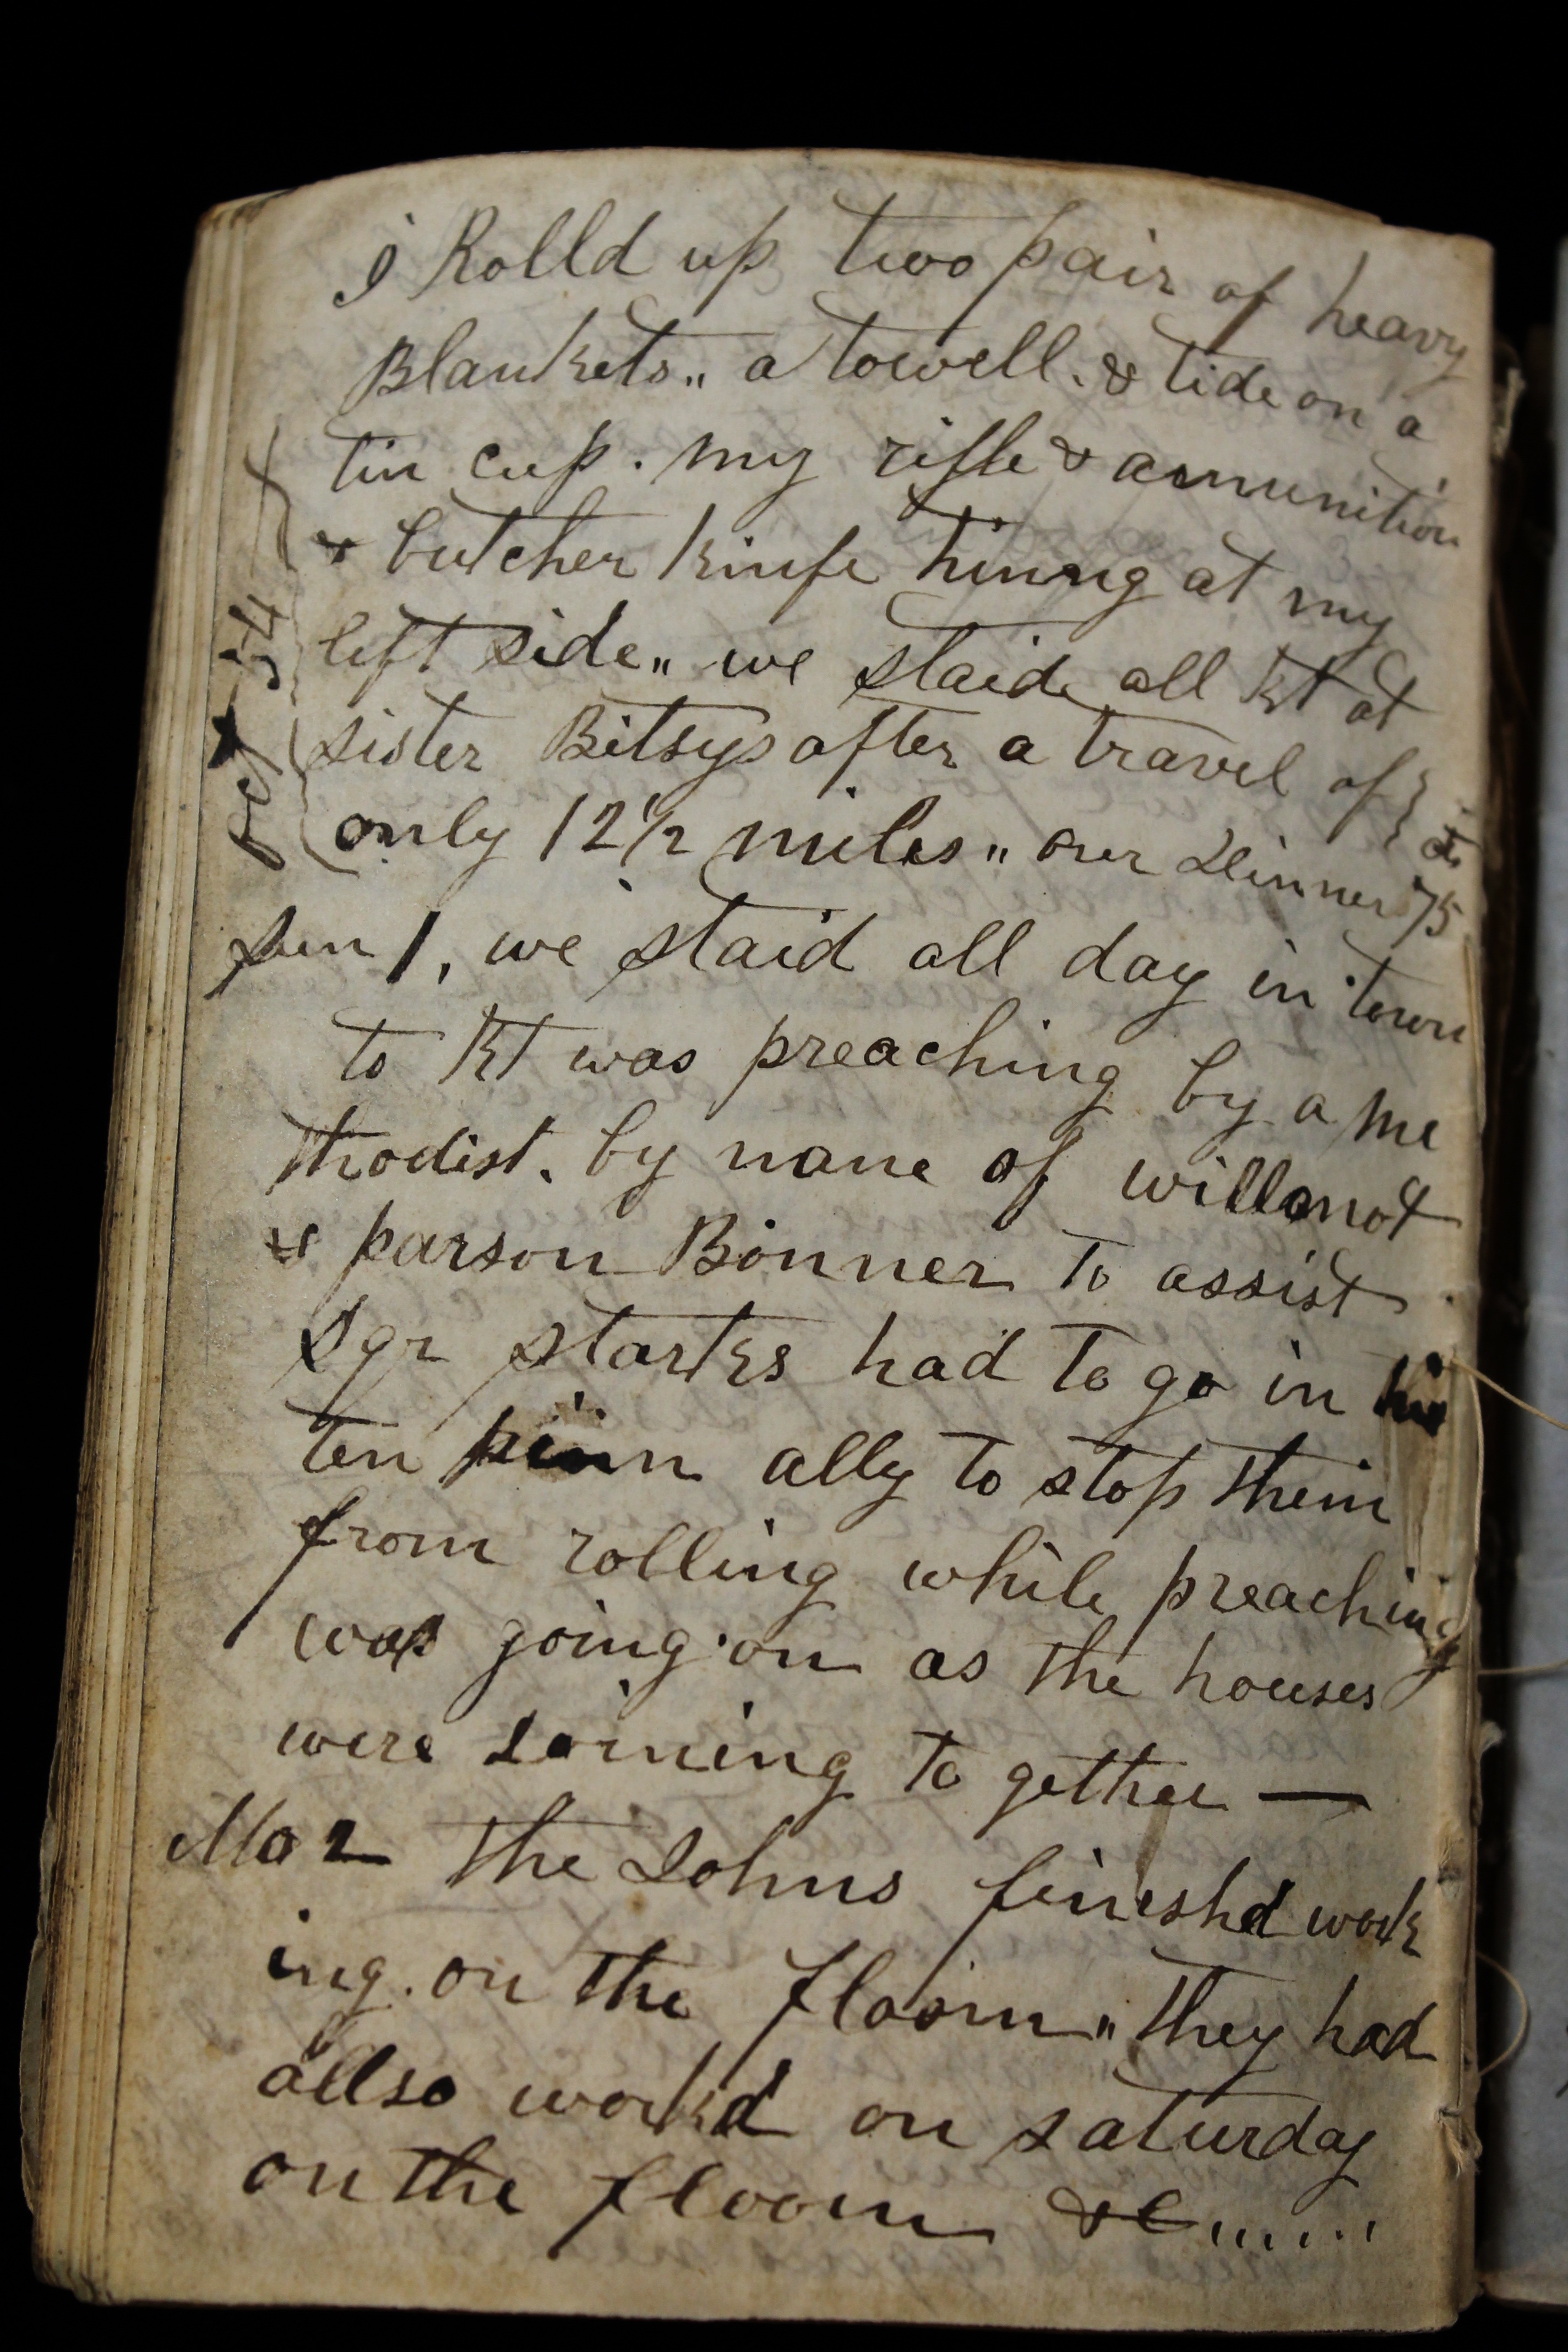 I Rolld up two pair of heavy
Blankets„ a towell. & tide on a
tin cup. my rifle & amunition
& butcher kinfe hinng at my
left side„ we staid all Kt at
sister Bitsys after a travel of
only 12½ miles„ our Dinner cts 75
Oct 54
Sun 1, we staid all day in town
to Kt was preaching by a me
thodist. by name of willmot
& parson Bonner to assist
Sqr starks had to go in his
ten pinn ally to stop them
from rolling while preaching
was going on as the houses
were Joining to gether —
Mo 2 the Johns finishd work
ing. on the floom„ they had
allso workd on saturday
on the floom &c......